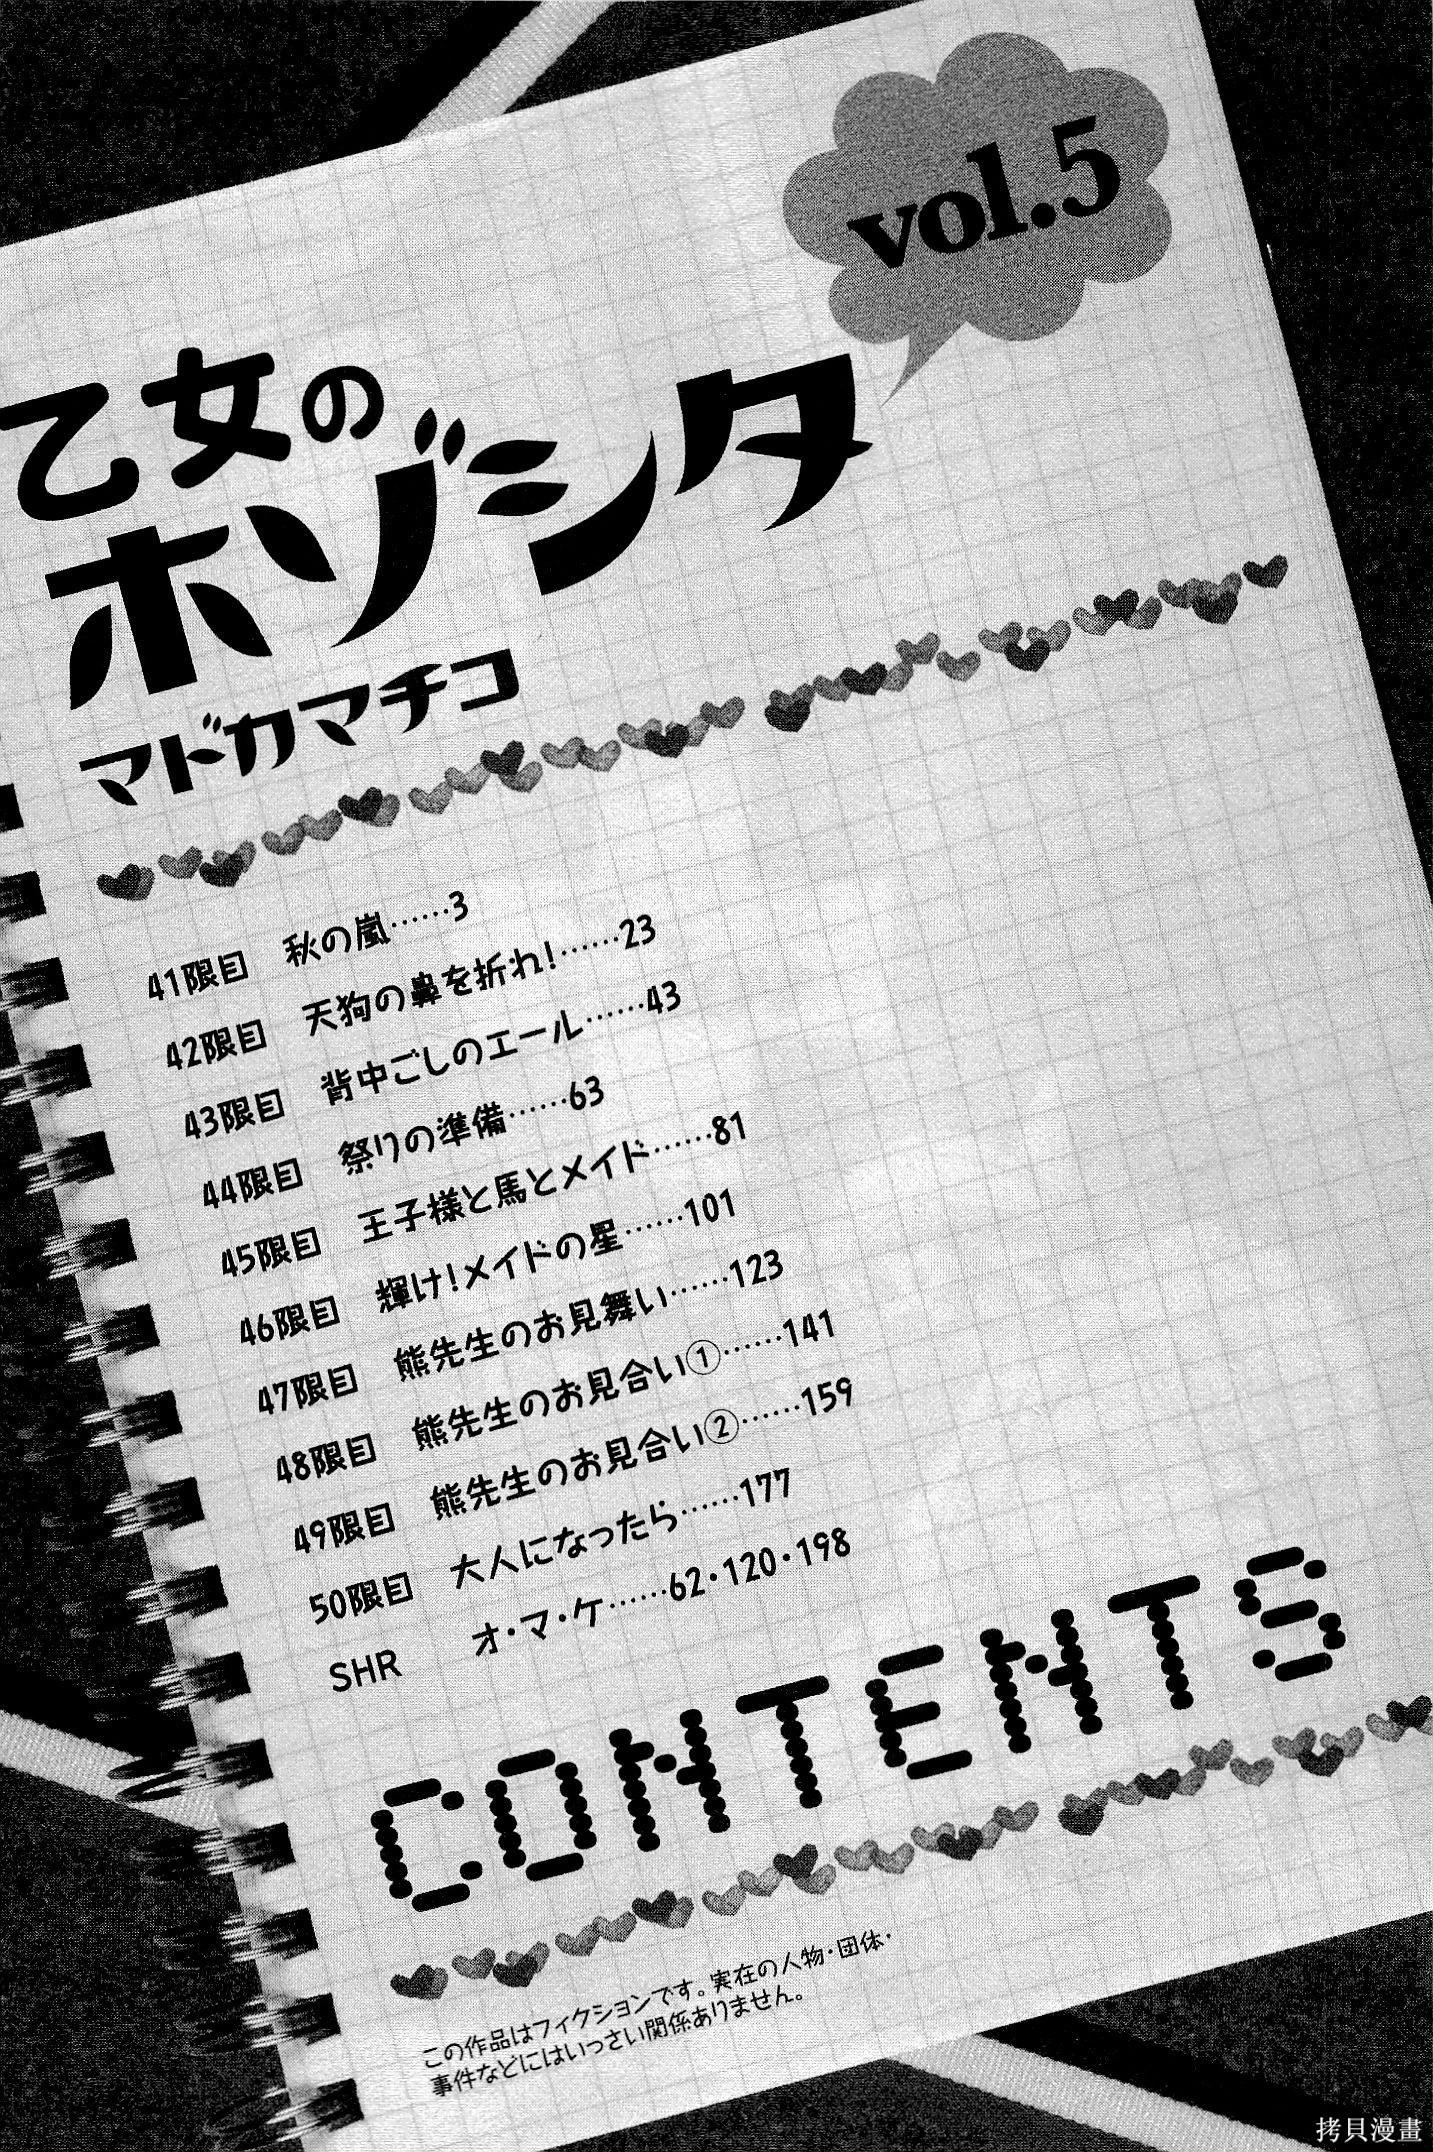 vol.5
乙女の
ホゾシタ
マドカマチコ
41限目 秋の嵐……3
42限目 天狗の鼻を折れ!……23
43限目 背中ごしのエール……43
44限目 祭りの準備……63
45限目 王子様と馬とメイド……81
46限目 輝け!メイドの星……101
47限目 熊先生のお見舞い……123
48限目 熊先生のお見合い①……141
49限目 熊先生のお見合い②……159
50限目 大人になったら……177
SHR オ・マ・ケ……62・120・198
CONTENTS
この作品はフィクションです。実在の人物・団体・
事件などにはいっさい関係ありません。
拷貝漫畫